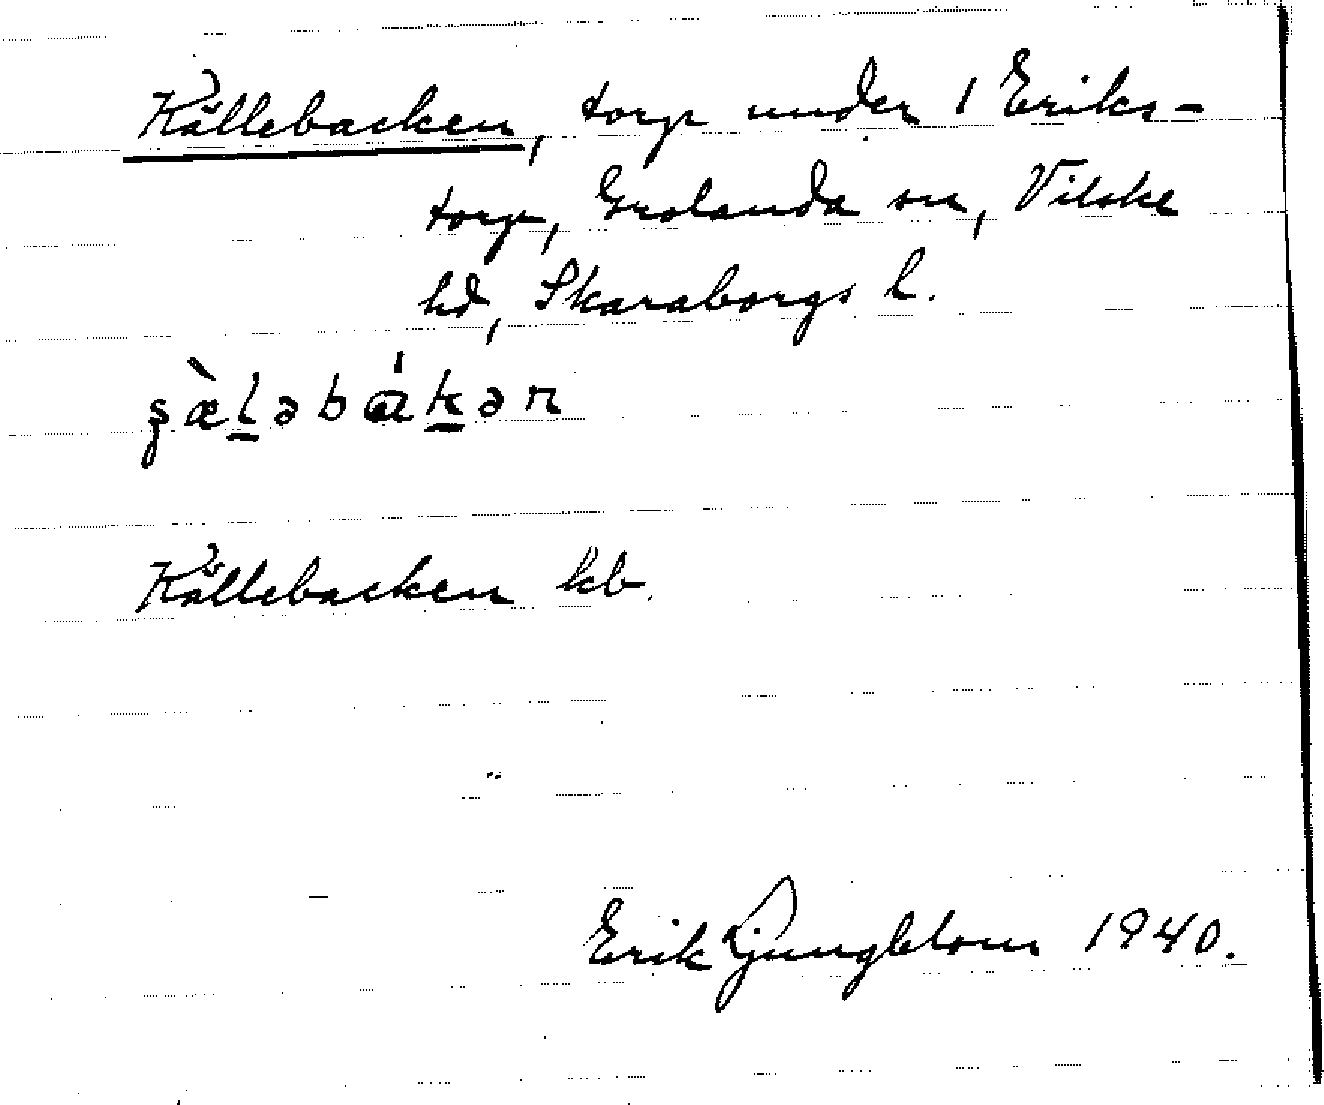 Källebacken, torp under 1 Eriks-
torp, Grolanda sn, Vilske
hd, Skaraborgs l.
ʂæ̀l̠əbɑ́k̠ən
Källebacken kb.
Erik Ljungblom 1940.